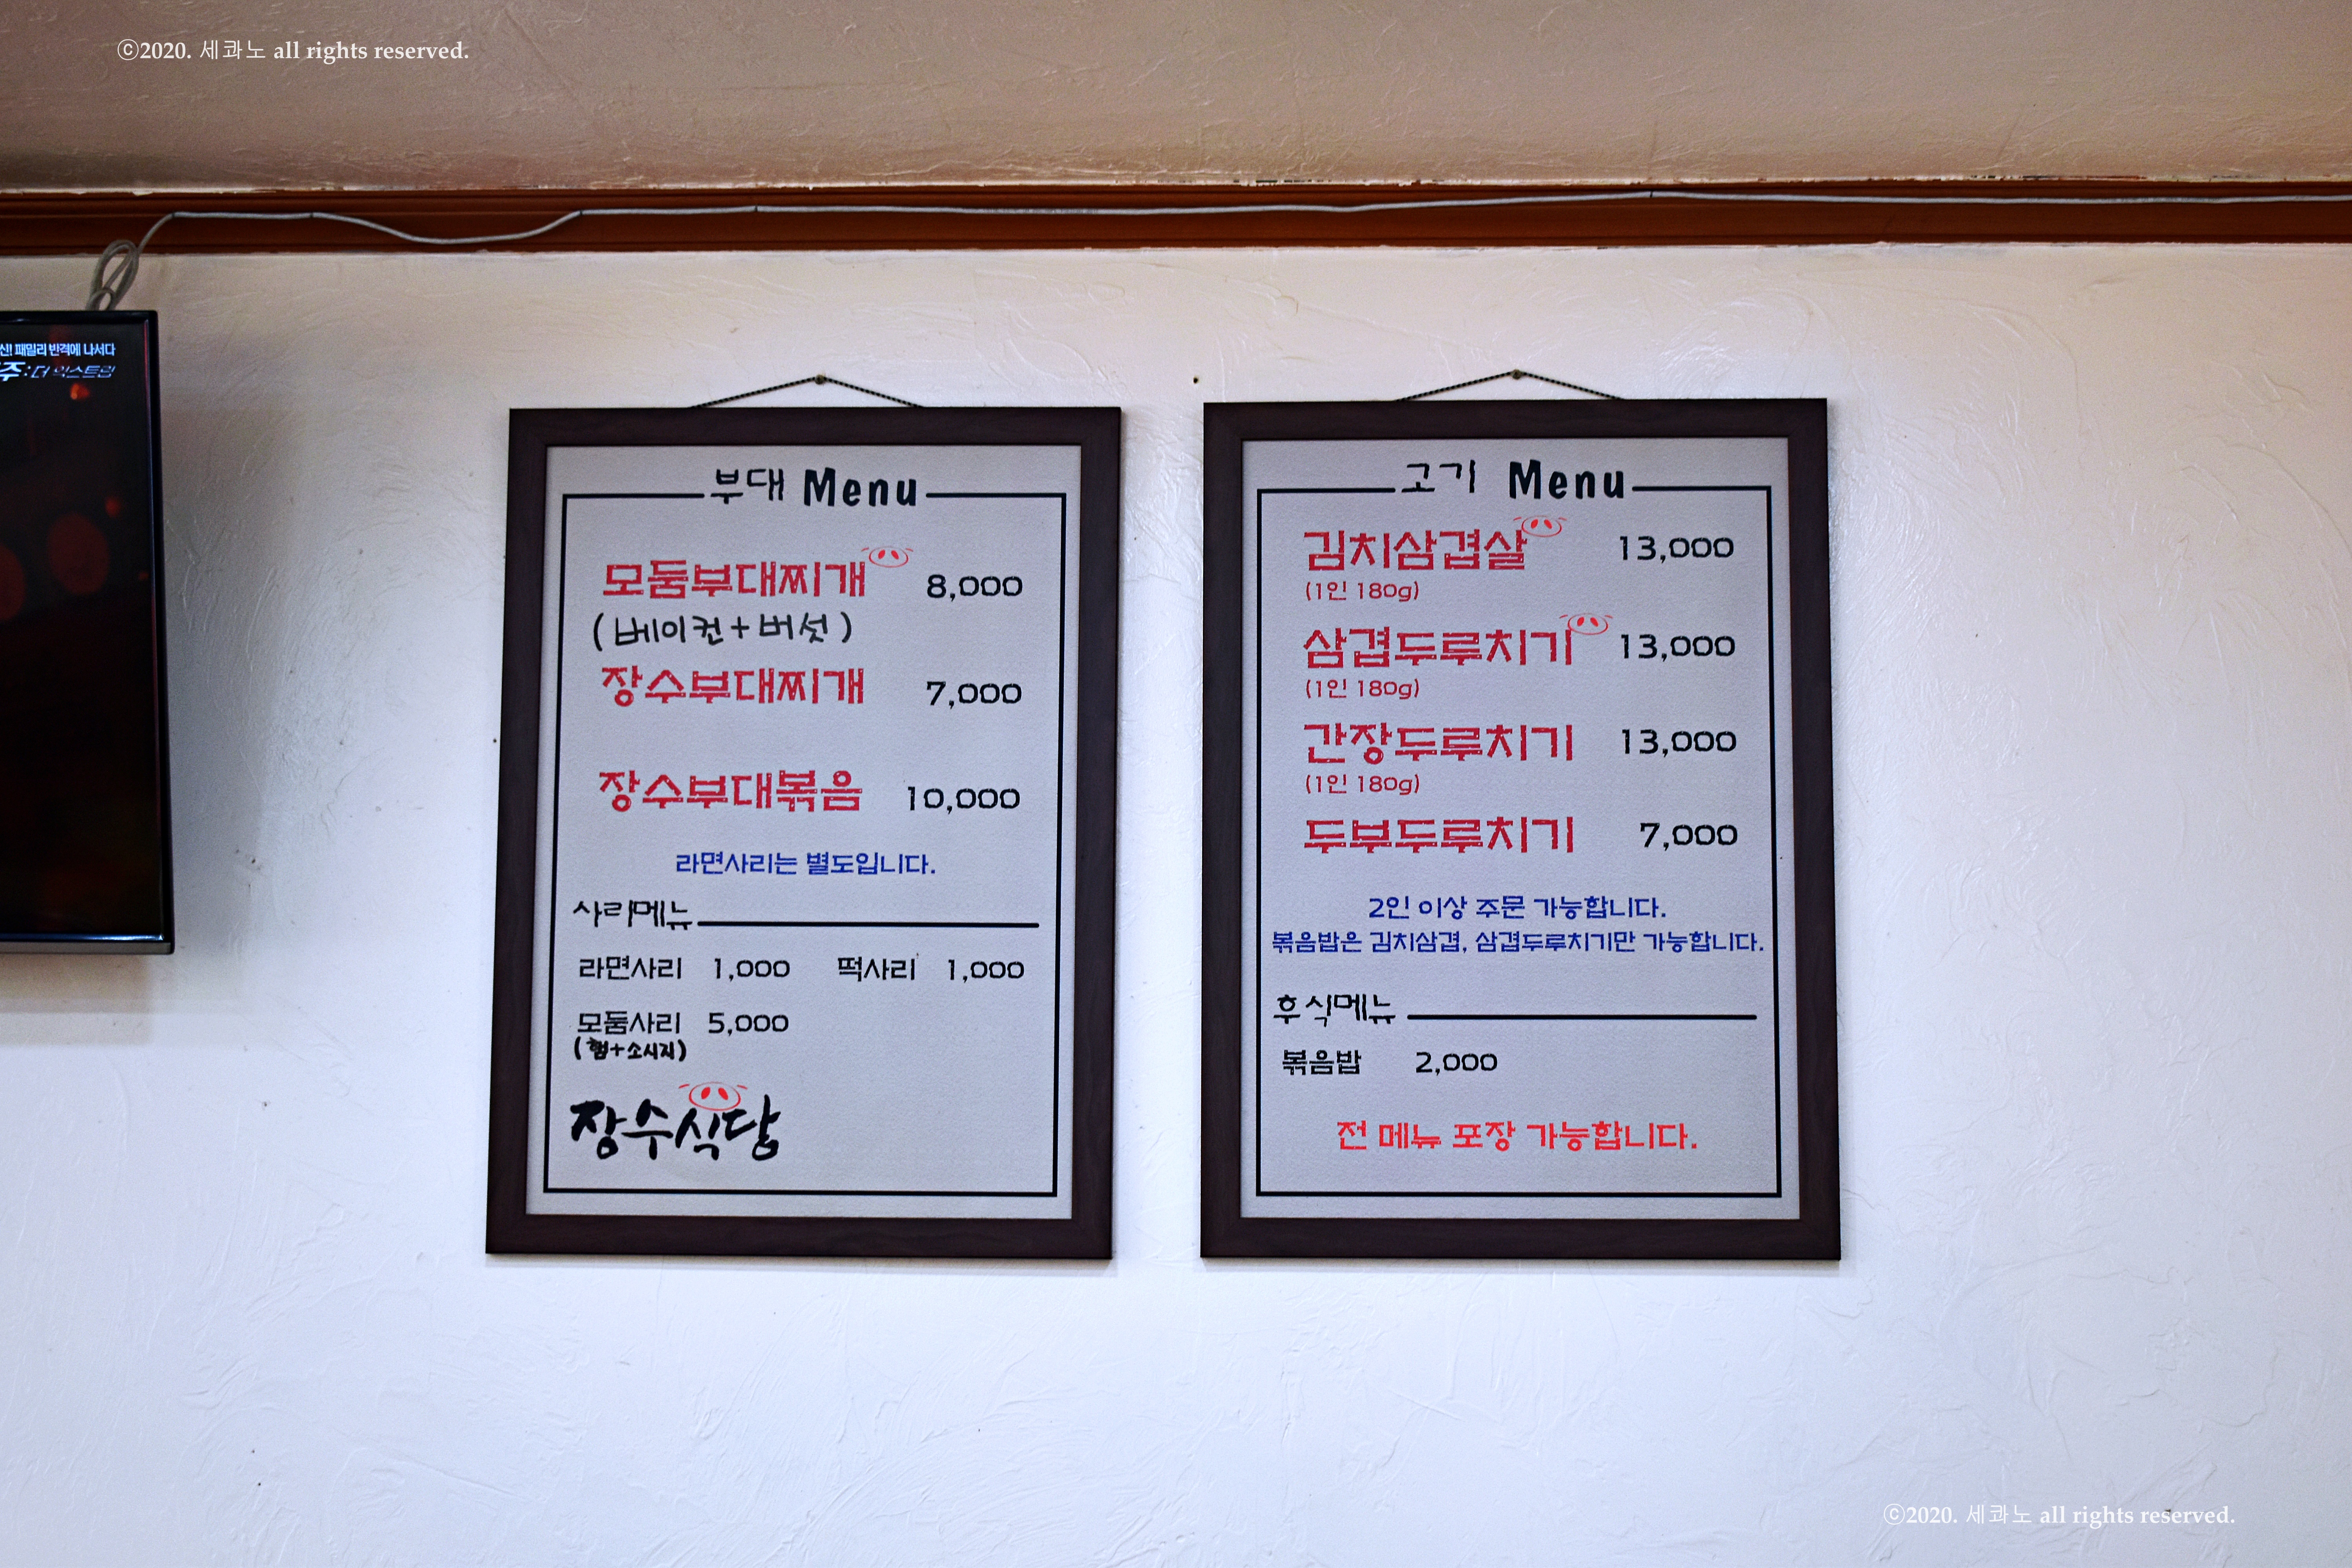 ⓒ2020. 세콰노 all rights reserved.
신! 패밀리 반격에 나서다
주:더 익스트림
부대 Menu
모둠부대찌개 8,000
(베이컨+버섯)
장수부대찌개 7,000
장수부대볶음 10,000
라면사리는 별도입니다.
사리메뉴
라면사리 1,000 떡사리 1,000
모둠사리 5,000
(햄+소시지)
장수식당
고기 Menu
김치삼겹살 13,000
(1인 180g)
삼겹두루치기 13,000
(1인 180g)
간장두루치기 13,000
(1인 180g)
두부두루치기 7,000
2인 이상 주문 가능합니다.
볶음밥은 김치삼겹, 삼겹두루치기만 가능합니다.
후식메뉴
볶음밥 2,000
전 메뉴 포장 가능합니다.
ⓒ2020. 세콰노 all rights reserved.